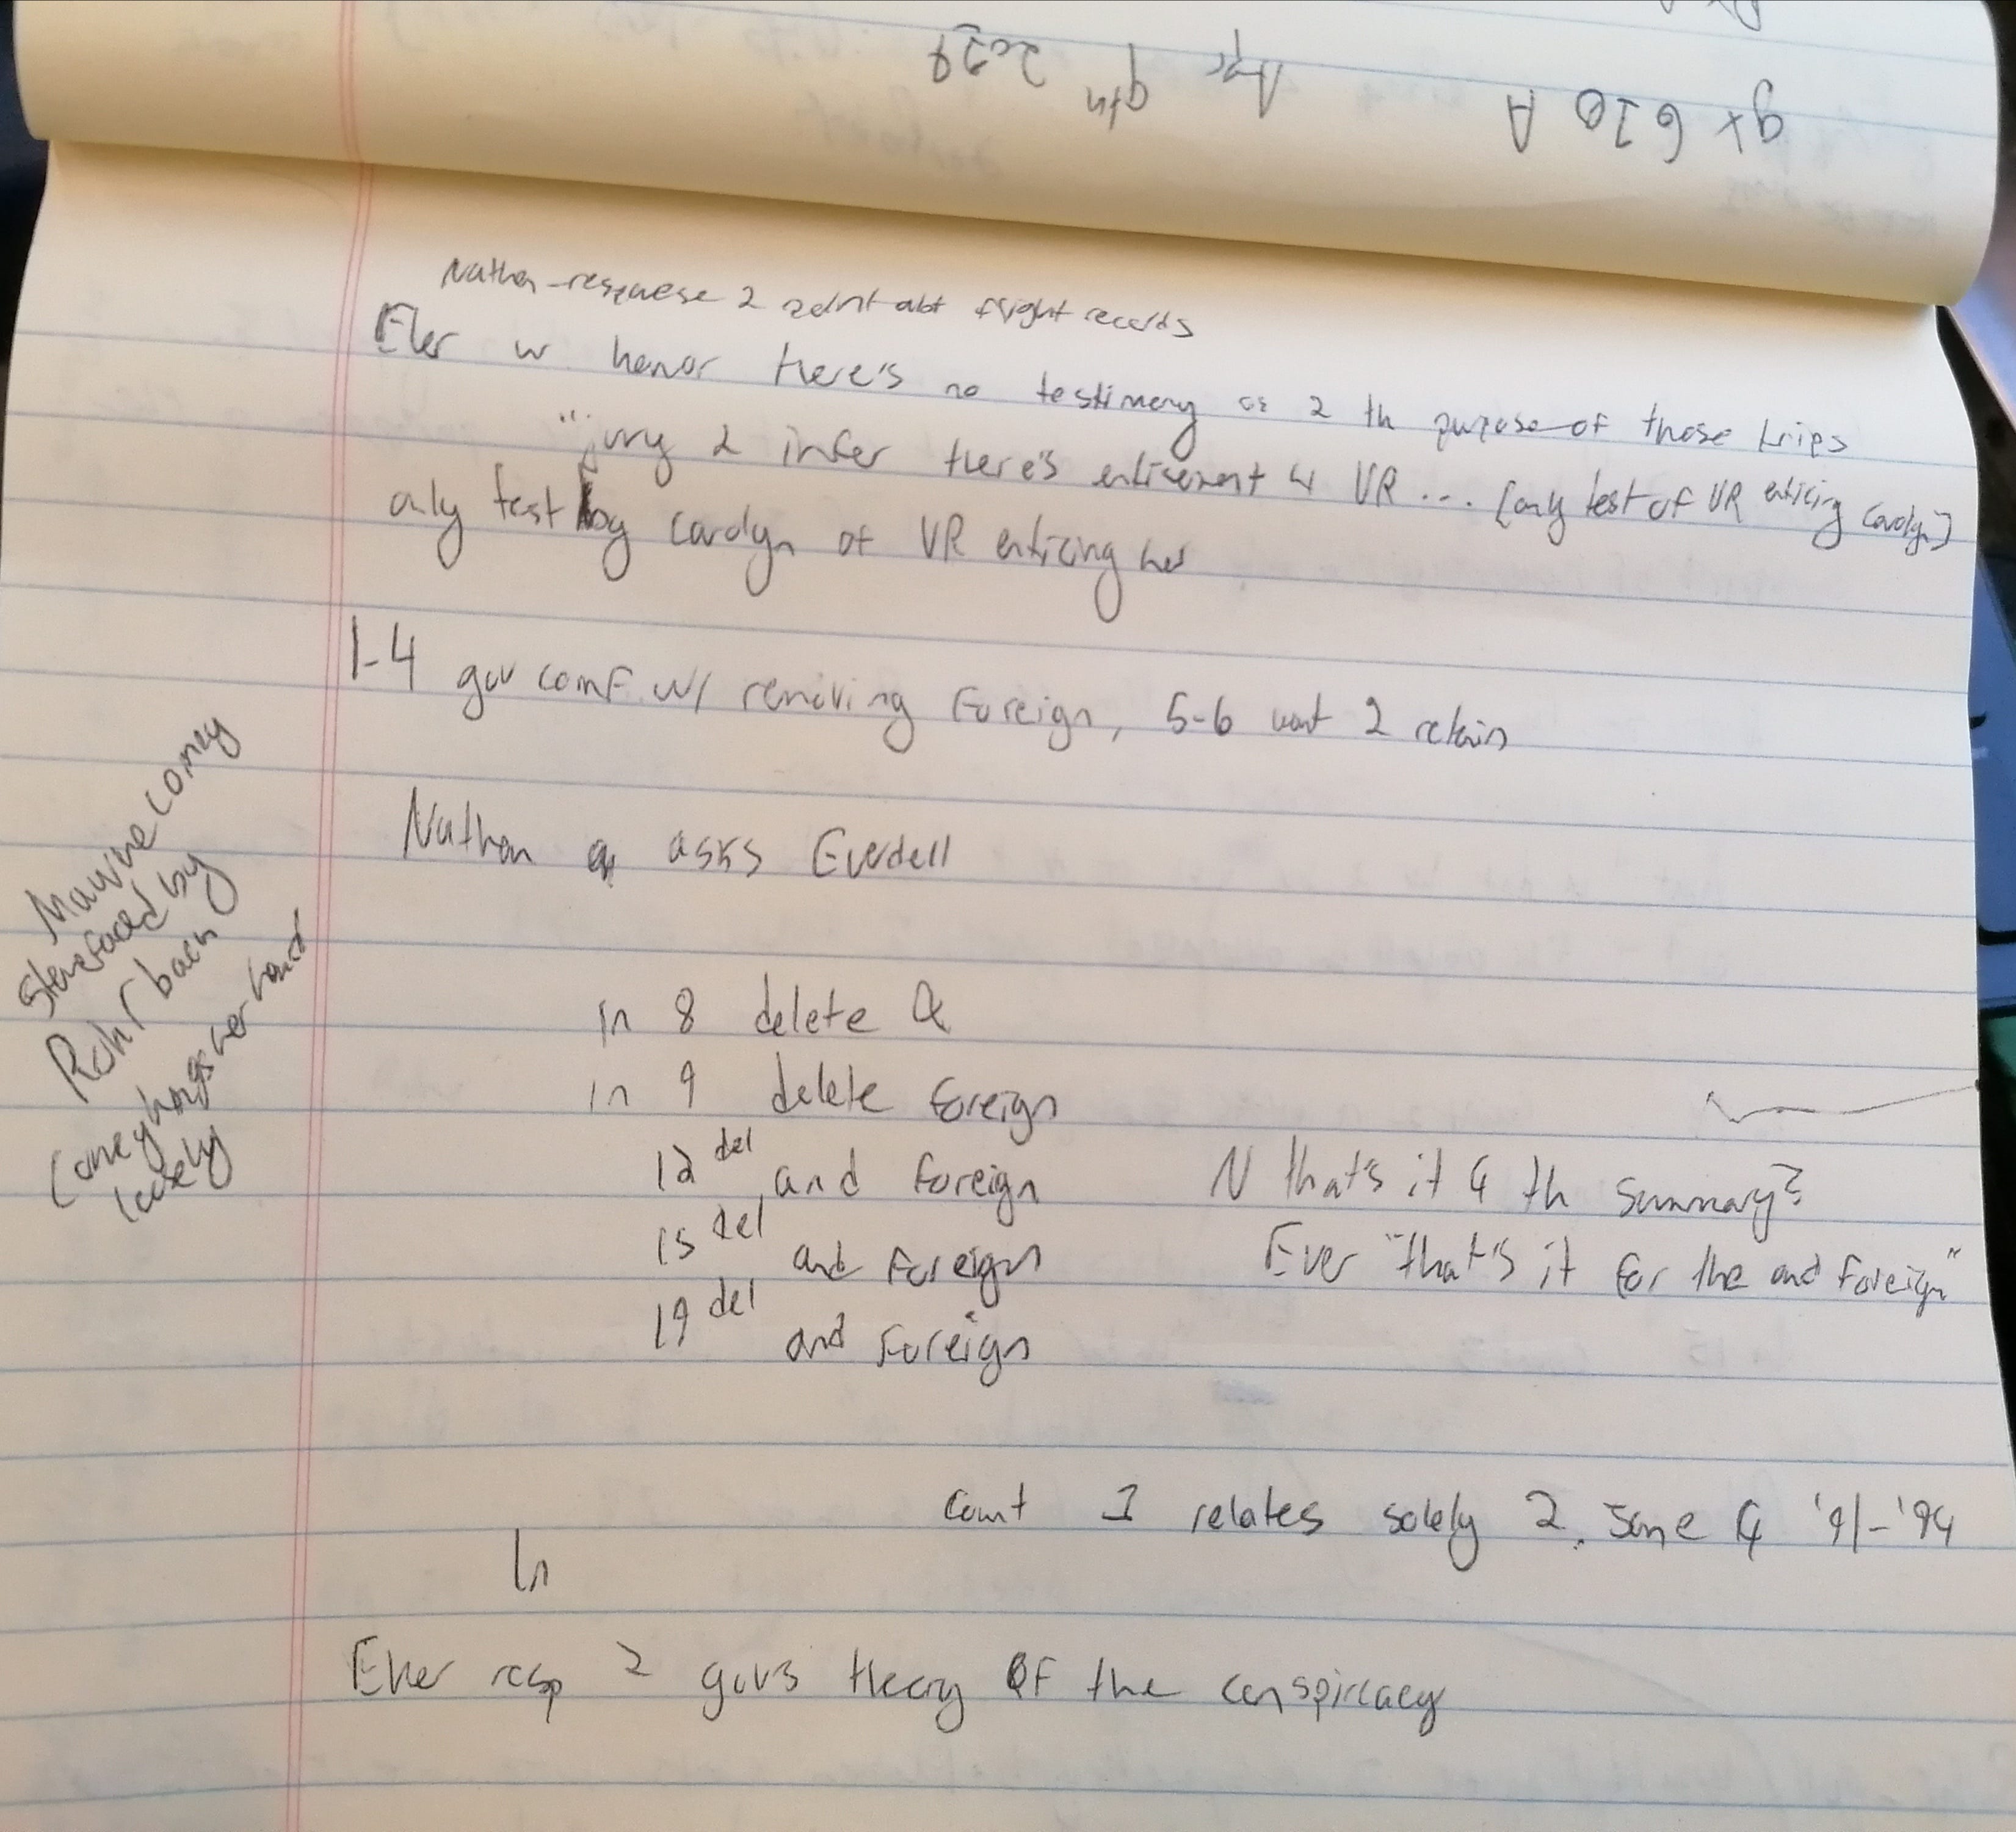 gx 610 A Apr 9th
Nathan-response 2 abt flight records
Ever w honor there's no testimony as 2 th purpose of those trips
"jury 2 infer there's enticement 4 VR ... [only test of VR enticing Carolyn]
only test by Carolyn of VR enticing her
1-4 gov comf w/ removing foreign, 5-6 want 2 retain
Nathan asks Everdell
Maurene Comey
by
Rohrbach
Comey hangs her head
in 8 delete Q
in 9 delete foreign
12 del and foreign
N that's it 4 th summary?
15 del and foreign
Ever "that's it for the and foreign"
19 del and foreign
Count 1 relates solely 2 Jane 4 '91-'94
In
Ever resp 2 govs theory of the conspircaey